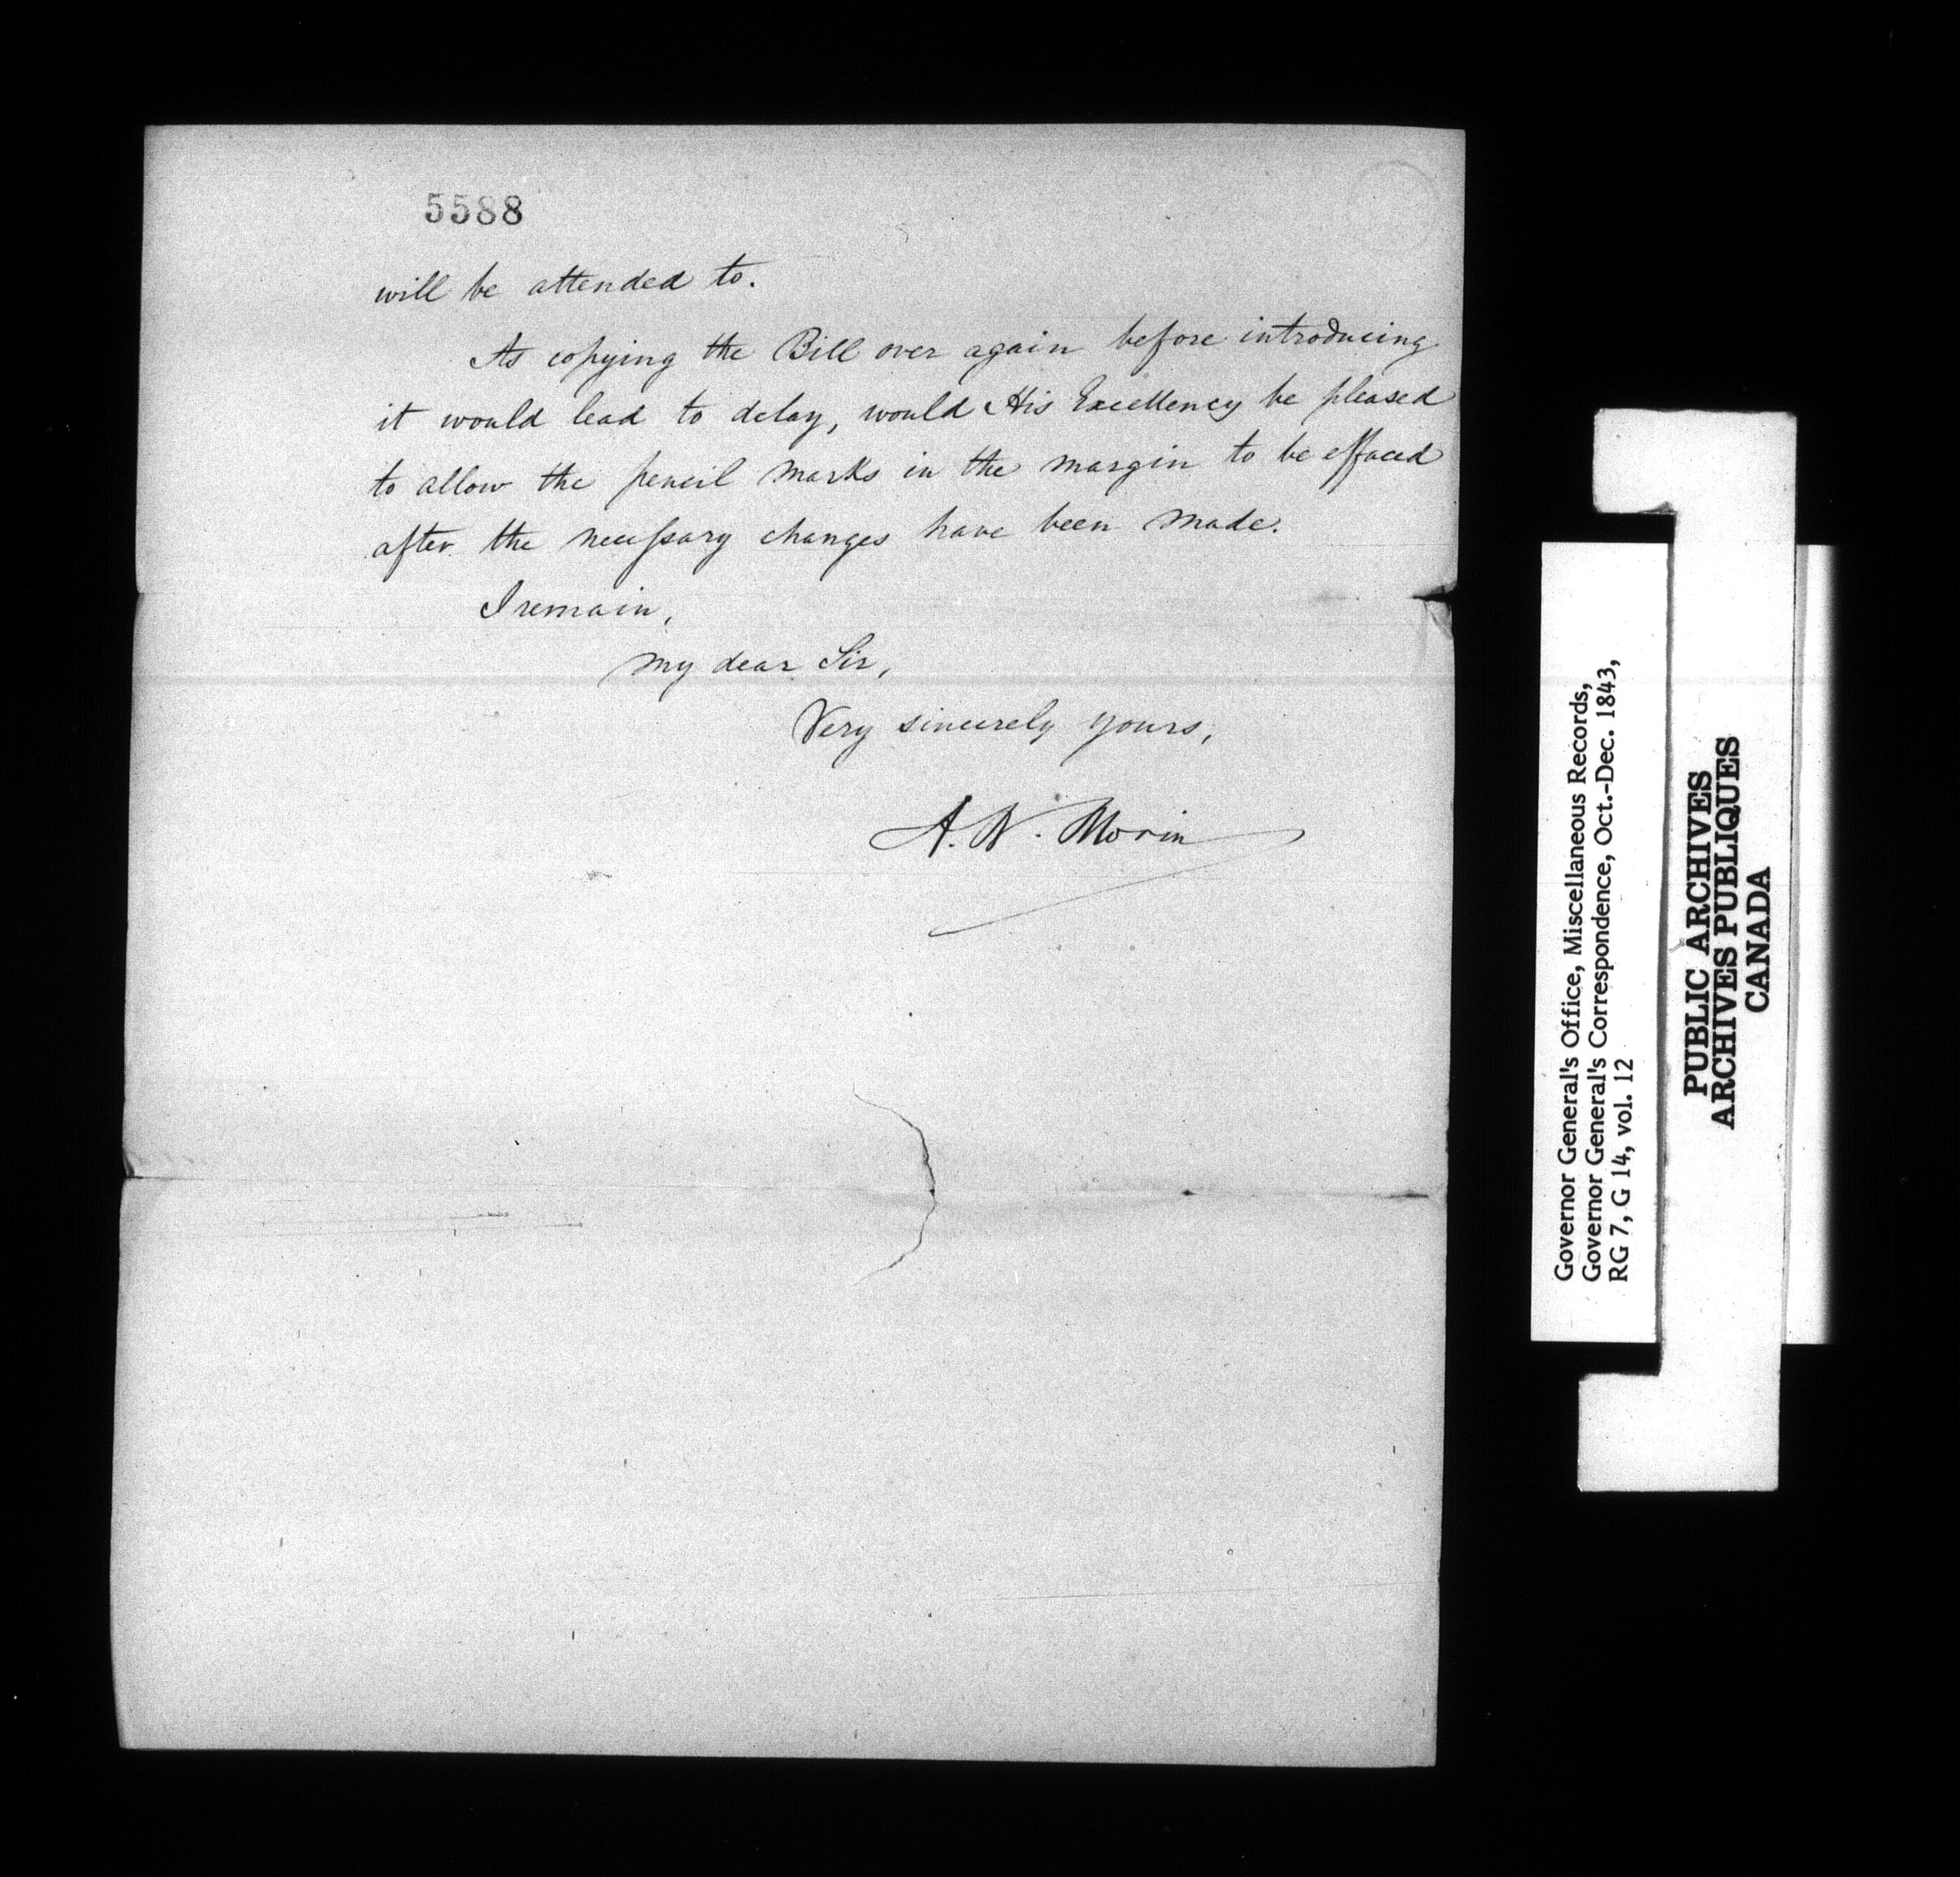 5588
will be attended to.
As copying the Bill over again before introducing
it would lead to delay, would His Excellency be pleased
to allow the pencil marks in the margin to be effaced
after the necessary changes have been made.
I remain,
My dear Sir,
Very sincerely yours,
A. N. Morin
Governor General's Office, Miscellaneous Records,
Governor General's Correspondence, Oct.-Dec. 1843,
RG 7, G 14, vol. 12
PUBLIC ARCHIVES
ARCHIVES PUBLIQUES
CANADA